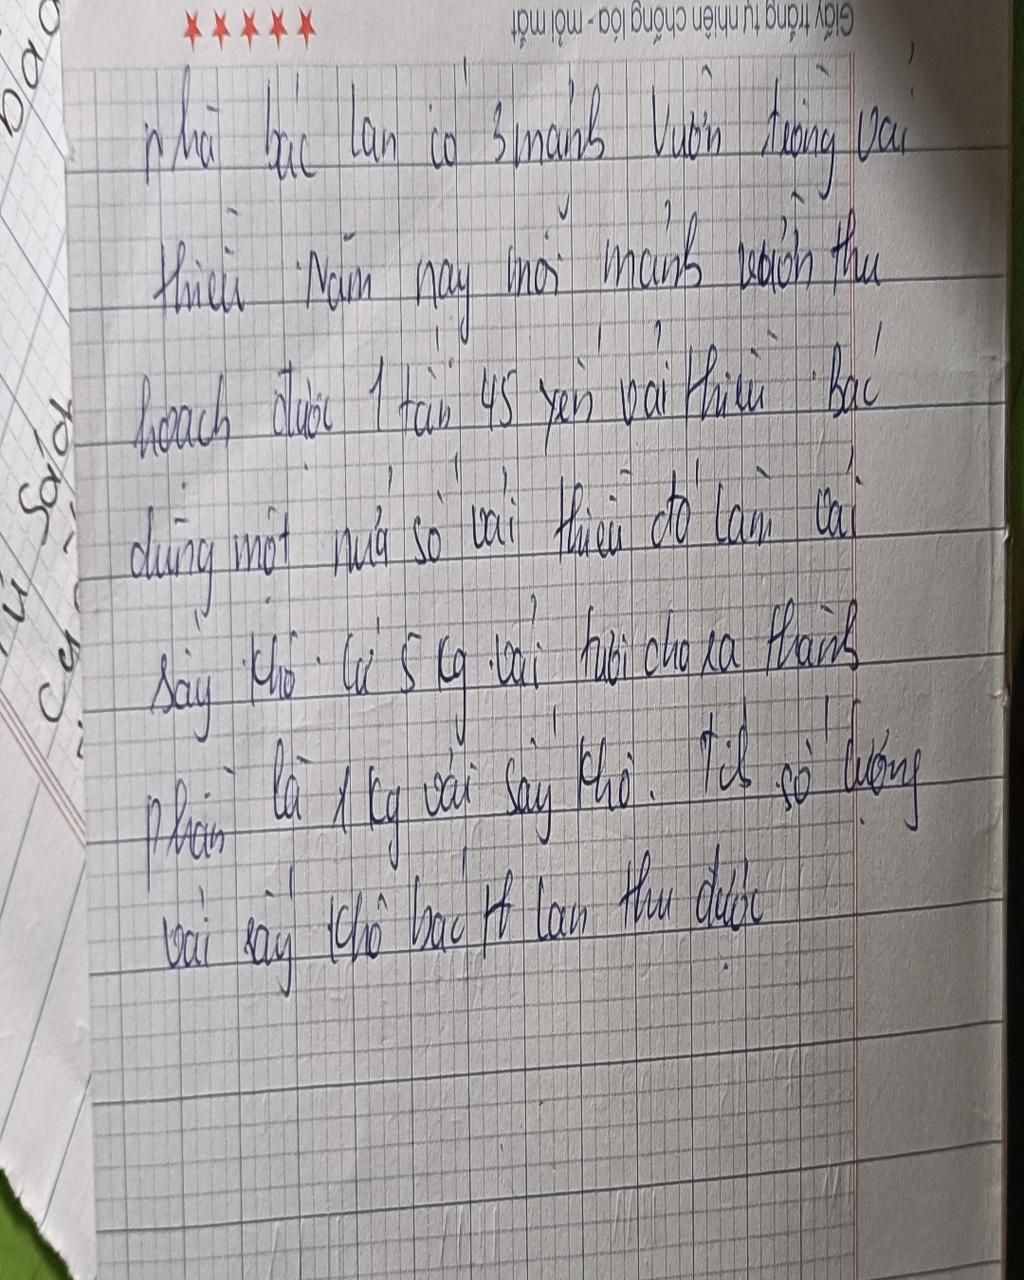 Giấy trắng tự nhiên chống lóa - mỏi mắt
nhà bác lan có 3 mảnh vườn trồng vải
thiều Năm nay mỗi mảnh vườn thu
hoạch được 1 tấn 45 yến vải thiều Bác
dùng một nửa số vải thiều đó làm vải
sấy khô. cứ 5 kg vải tươi cho ra thành
phần là 1 kg vải sấy khô. Tính số lượng
vải sấy khô bác lan thu được